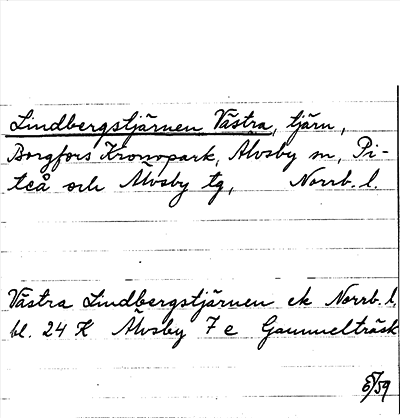 Lindbergstjärnen Västra, tjärn,
Borgfors Kronopark, Älvsby sn, Pi-
teå och Älvsby tg, Norrb. l.
Västra Lindbergstjärnen ek Norrb. l.
bl. 24 K Älvsby 7 e Gammelträsk
5/59